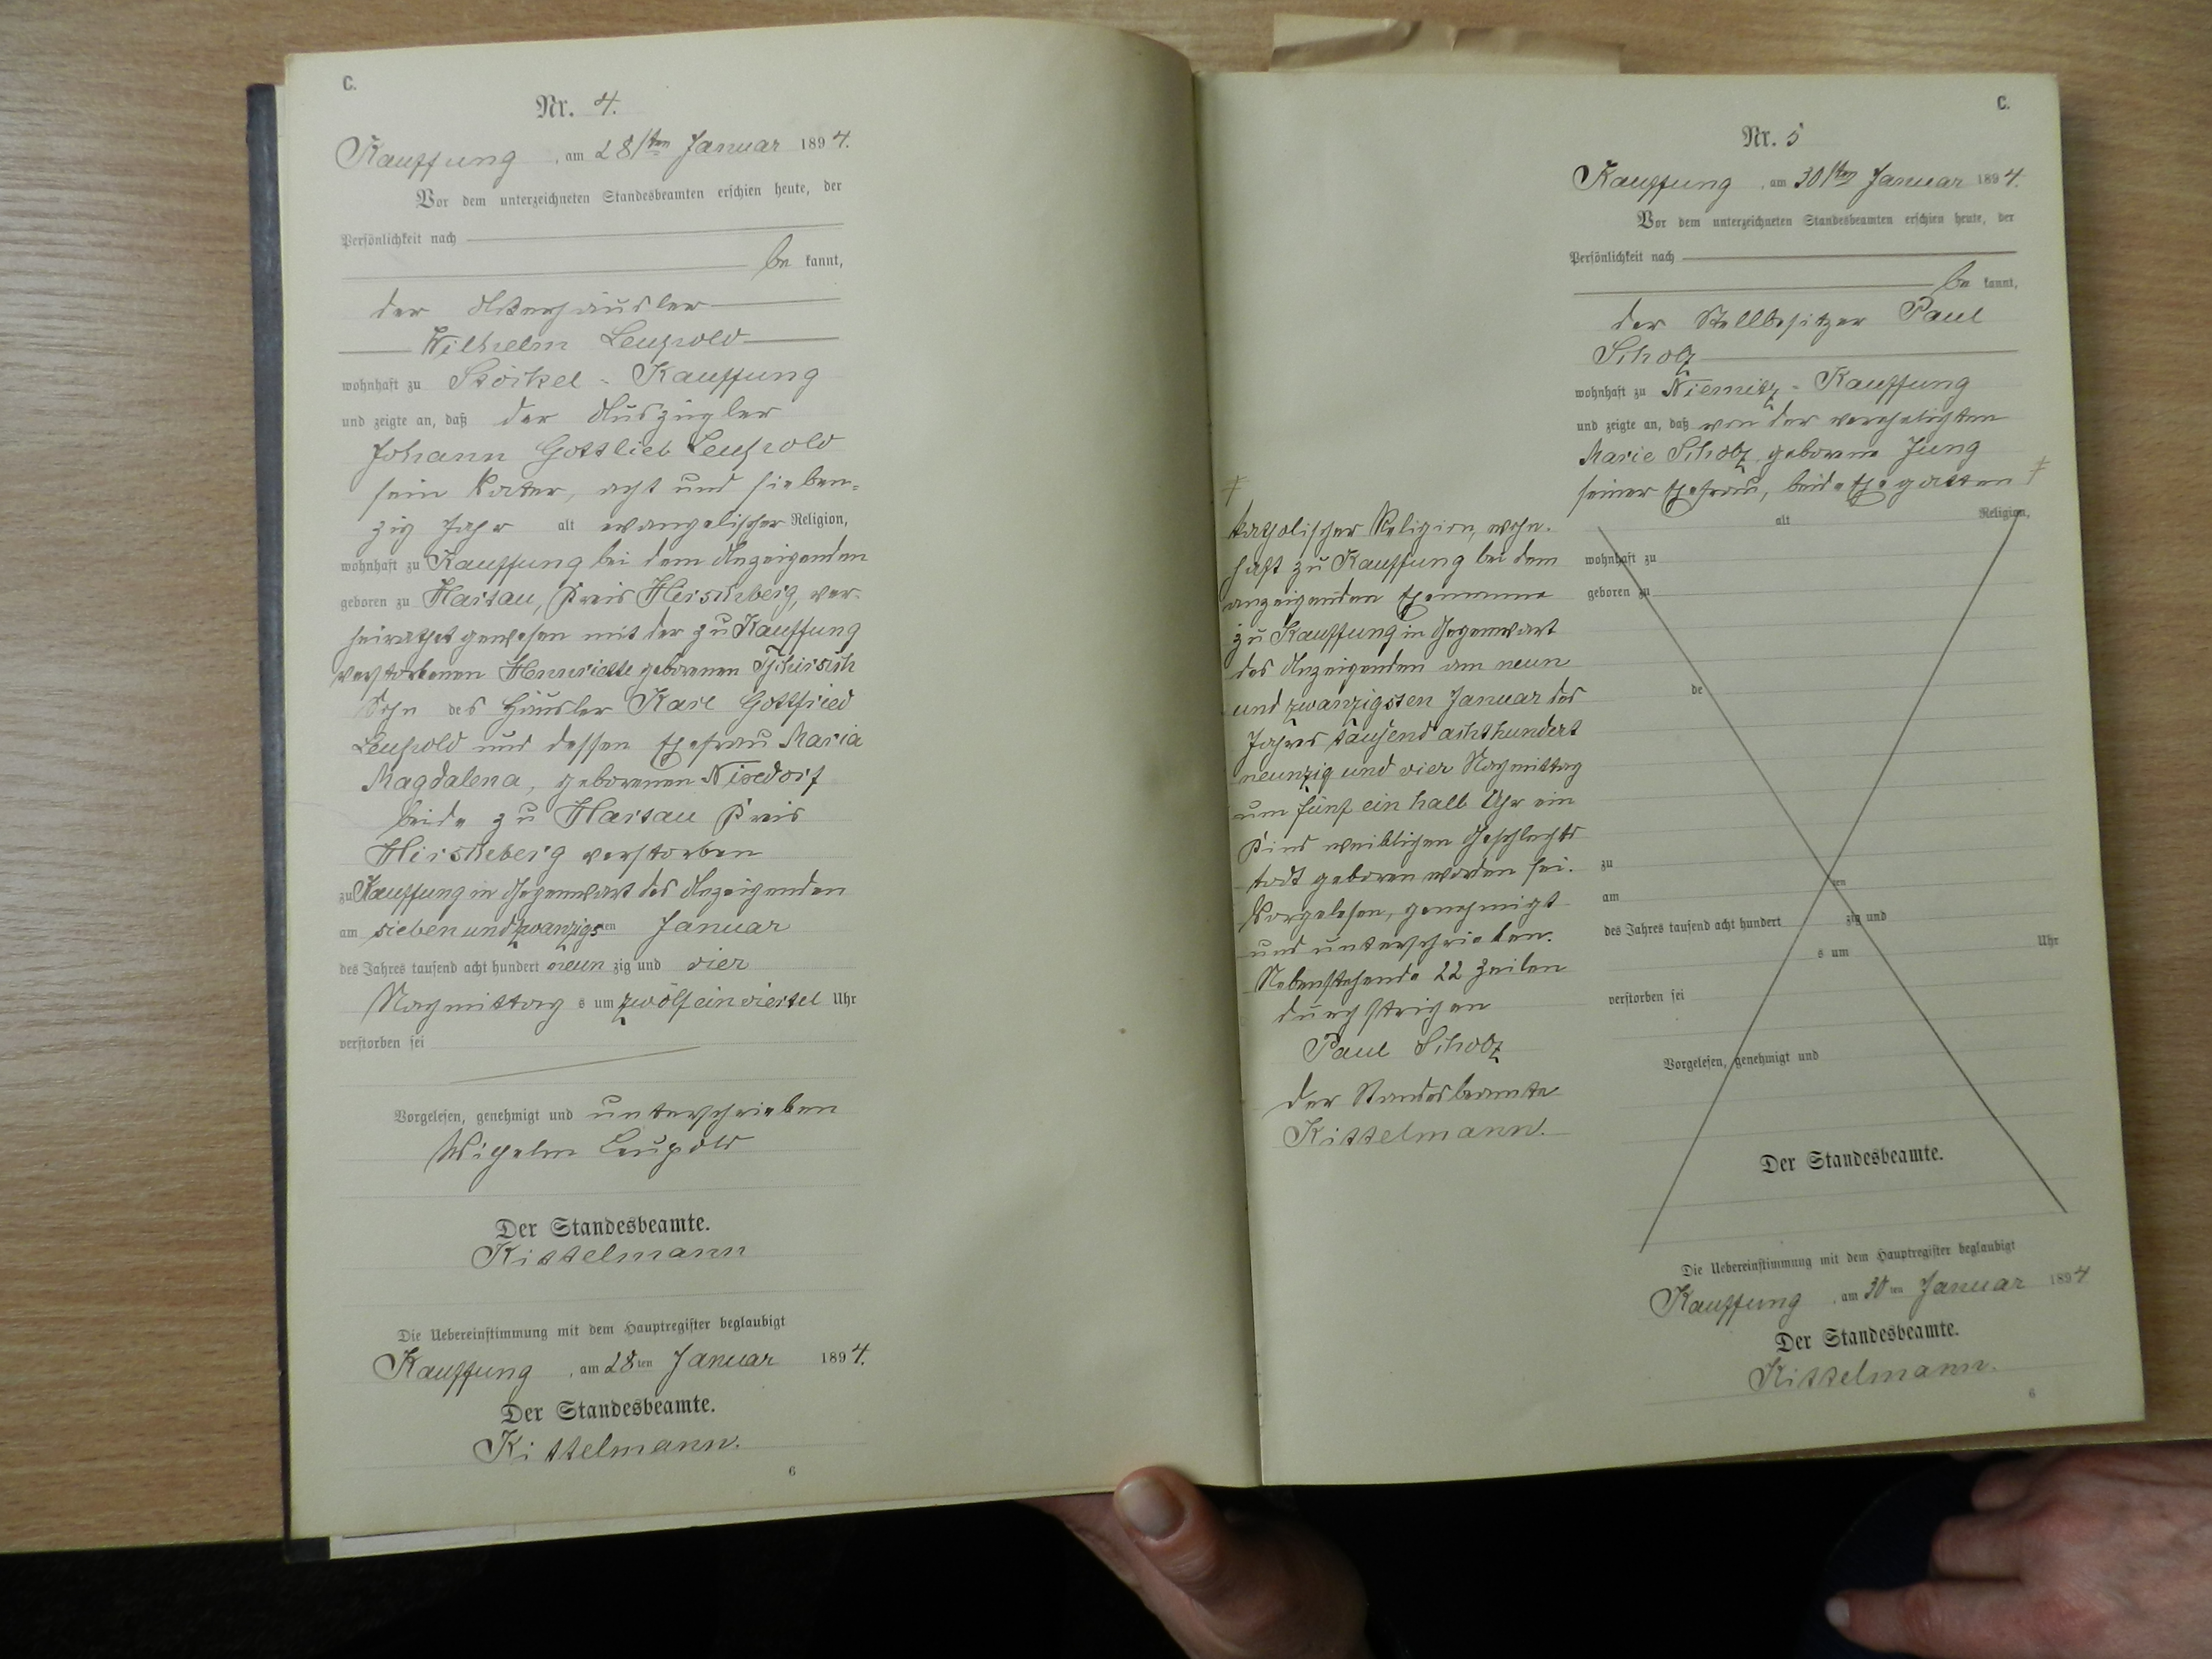 C.
Nr. 4.
Kauffung, am 28sten Januar 1894.
Vor dem unterzeichneten Standesbeamten erschien heute, der
Persönlichkeit nach
be kannt,
der
Wilhelm Leupold
wohnhaft zu Stöckel-Kauffung
und zeigte an, daß der Auszügler
Johann Gottlieb Leupold
sein Vater, acht und sieben-
zig Jahr alt evangelischer Religion,
wohnhaft zu Kauffung bei dem Anzeigenden
geboren zu Hartau, Kreis Hirschberg, ver-
heirathet gewesen mit der zu Kauffung
verstorbenen Henriette geborenen
Sohn des Häusler Karl Gottfried
Leupold und dessen Ehefrau Maria
Magdalena, geborenen
beide zu Hartau Kreis
Hirschberg verstorben
zu Kauffung in Gegenwart des Anzeigenden
am siebenundzwanzigsten Januar
des Jahres tausend acht hundert neun zig und vier
Nachmittag s um zwölf ein viertel Uhr
verstorben sei
Vorgelesen, genehmigt und unterschrieben
Wilhelm Leupold
Der Standesbeamte.
Kittelmann
Die Uebereinstimmung mit dem Hauptregister beglaubigt
Kauffung, am 28ten Januar 1894.
Der Standesbeamte.
Kittelmann.
6
C.
Nr. 5
Kauffung, am 30sten Januar 1894.
Vor dem unterzeichneten Standesbeamten erschien heute, der
Persönlichkeit nach
be kannt,
der Stellbesitzer Paul
Scholz
wohnhaft zu Niemitz-Kauffung
und zeigte an, daß von der verehelichten
Marie Scholz geborene Jung
seiner Ehefrau, beide Ehegatten ǂ
ǂ
katholischer Religion, wohn-
haft zu Kauffung bei dem
anzeigenden Ehemanne
zu Kauffung in Gegenwart
des Anzeigenden am neun
und zwanzigsten Januar des
Jahres tausend achthundert
neunzig und vier Nachmittag
um fünf ein halb Uhr ein
Kind weiblichen Geschlechts
todt geboren worden sei.
Vorgelesen, genehmigt
und unterschrieben.
Nebenstehende 22 Zeilen
durchstrichen
Paul Scholz
Der Standesbeamte
Kittelmann.
alt Religion,
wohnhaft zu
geboren zu
de
zu
am ten
des Jahres tausend acht hundert zig und
s um Uhr
verstorben sei
Vorgelesen, genehmigt und
Der Standesbeamte.
Die Uebereinstimmung mit dem Hauptregister beglaubigt
Kauffung, am 30ten Januar 1894
Der Standesbeamte.
Kittelmann.
6